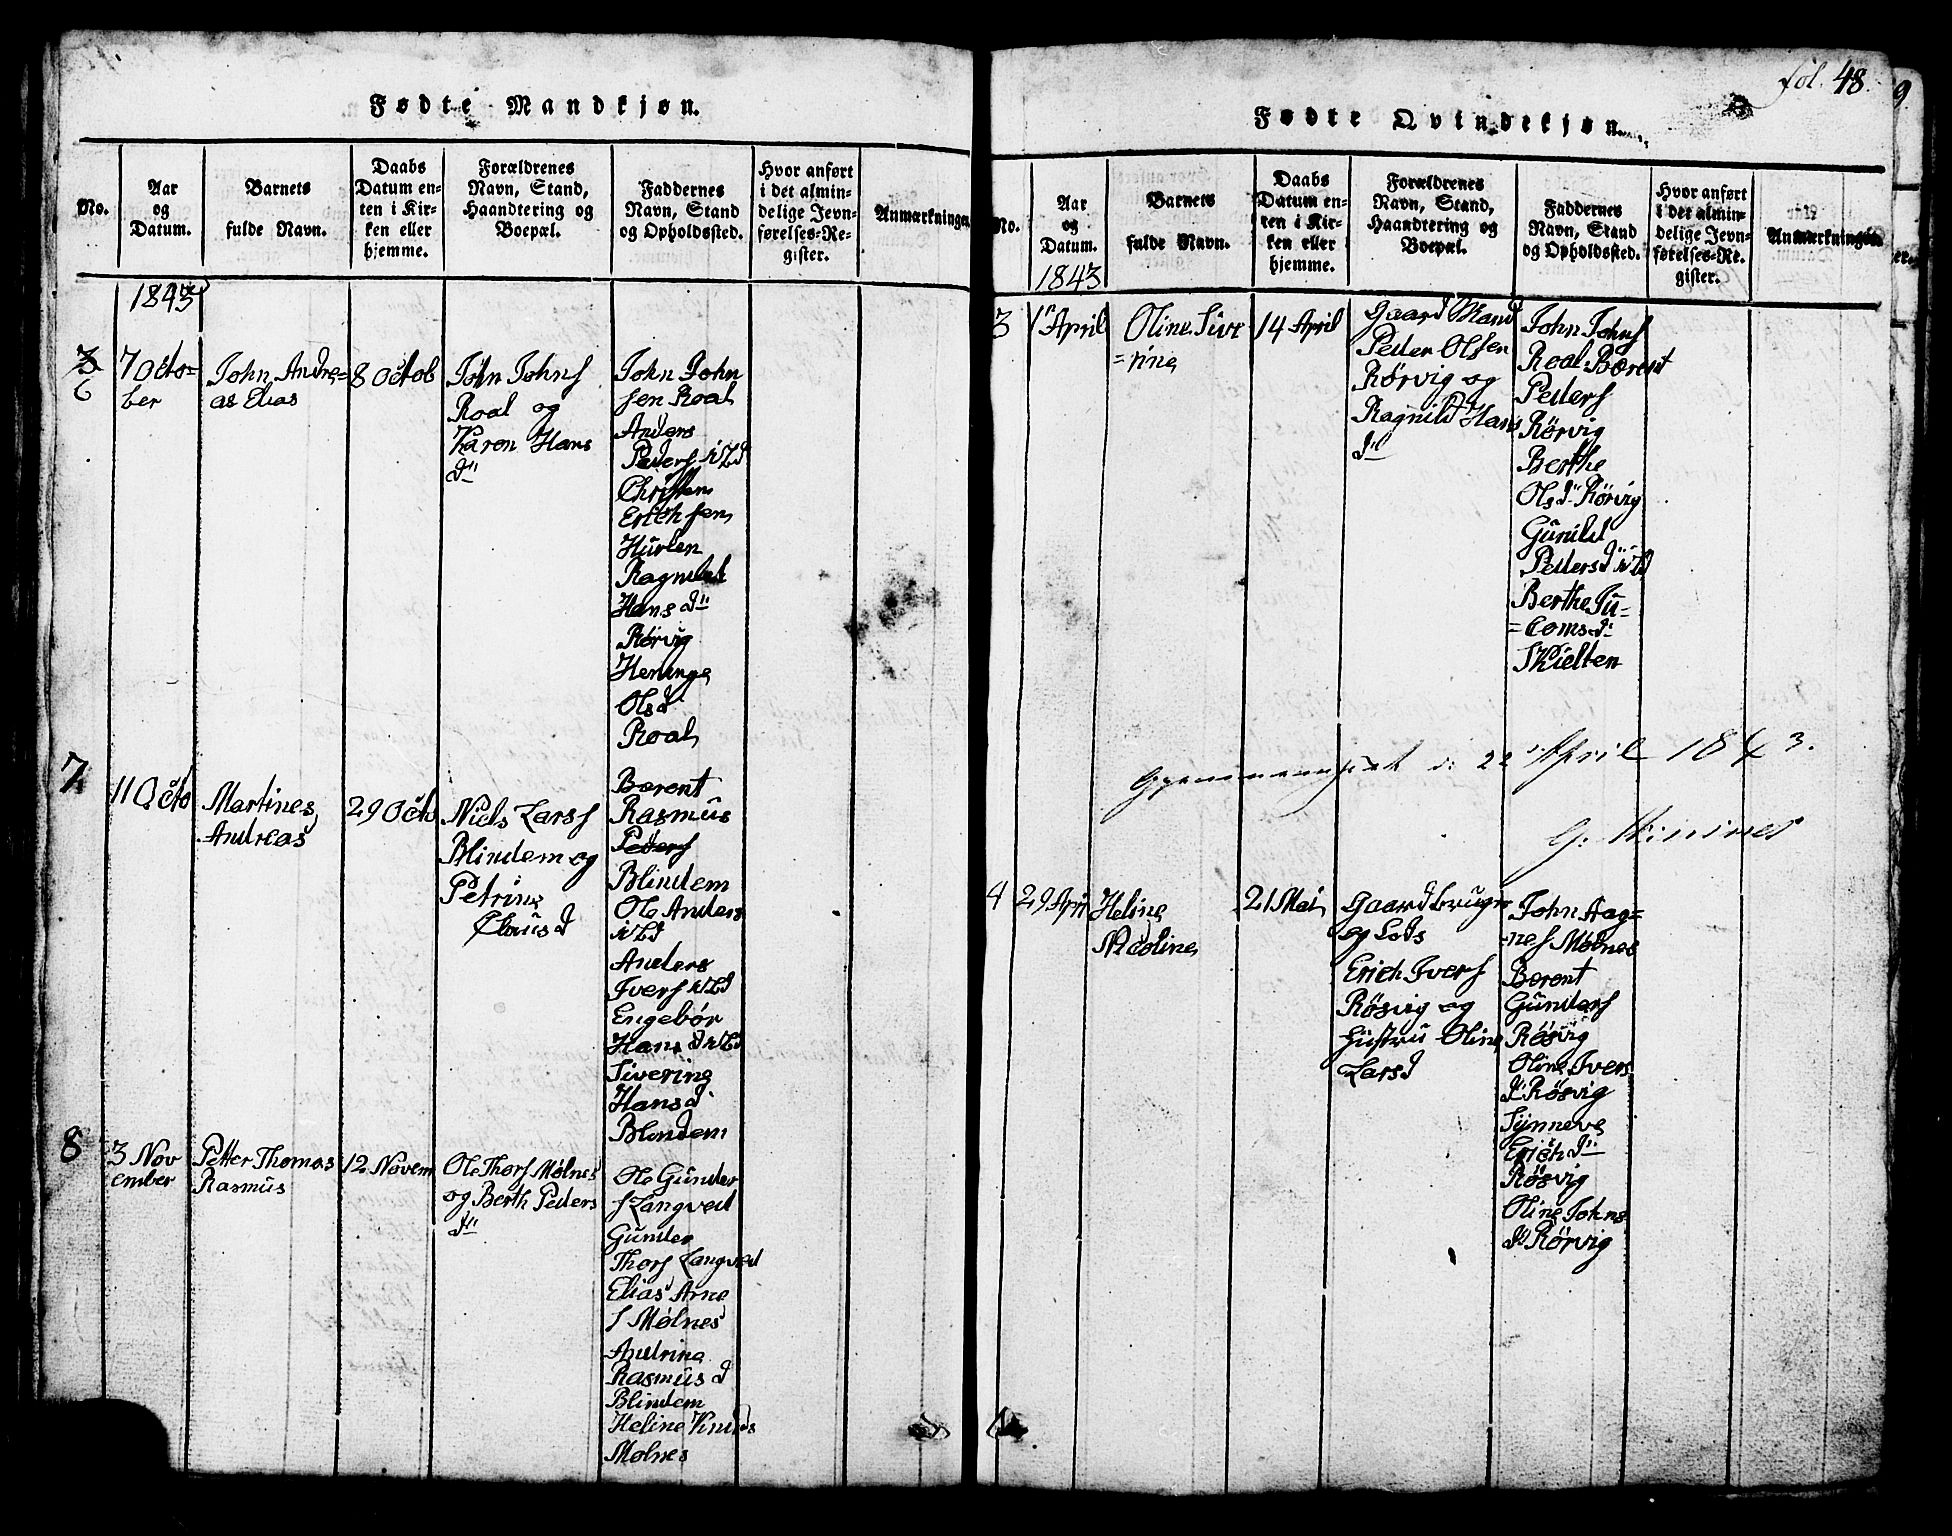 Fødte Mandkjøn.
No.
Aar
og
Datum.
Barnets
fulde Navn.
Daabs
Datum en-
ten i Kir-
ken eller
hjemme.
Forældrenes
Navn, Stand,
Haandtering og
Boepæl.
Faddernes
Navn, Stand
og Opholdssted.
Hvor anført
i det almin-
delige Jevn-
førelses-Re-
gister.
Anmærkninger.
1843
6
7 Octo=
ber
John Andre=
as Elias
8 Octob
John Johns
Roal og
Karen Hans
d
John John
sen Roal
Anders
Peders
Christen
Erichsen
Hurlen
Ragnild
Hans d
Rørvig
Heninge
Ols d
Roal
7
11 Octo
Martines
Andreas
29 Octo
Niels Lars
Blindem og
Petrine
Clausd
Berent
Rasmus
Peders
Blindem
Ole Anders
Anders
Ivers
Engebør
Hans d
Siverine
Hansd
Blindem
8
3 Nov
ember
Petter Thomas
Rasmus
12 Novem
Ole Thors Mølnes
og Berth Peders
d
Ole Gunder
s Langved
Gunder
Thors Langved
Elias Arne
s Mølnes
Andrine
Rasmus d
Blindem
Heline Knuds
Mølnes
fol. 48.
Fødte Qvindekjøn.
No.
Aar
og
Datum.
1843
Barnets
fulde Navn.
Daabs
Datum en-
ten i Kir-
ken eller
hjemme.
Forældrenes
Navn, Stand,
Haandtering og
Boepæl.
Faddernes
Navn, Stand
og Opholdssted.
Hvor anført
i det almin-
delige Jevn-
førelses-Re-
gister.
Anmærkninger.
3
1 April
Oline Sive
=rine
14 April
Gaard Mand
Peder Olsen
Rørvig og
Ragnild Hans
d
John Johns
Roal Berent
Peders
Rørvig
Berthe
Ols d Rørvig
Gunild
Pedersd
Berthe Ju=
=coms d
Skielten
Gjennemseet d: 22 April 1843.
4
29 Apri
Heline
Nicoline
21 Mai
Gaardbruger
og Lods
Erich Ivers
Røsvig og
Hustru Oline
Larsd
John Aag=
=nes Mølnes
Berent
Gunders
Røsvig
Oline Ivers
d Røsvig
Synneve
Erich d
Røsvig
Oline Johns
d Rørvig